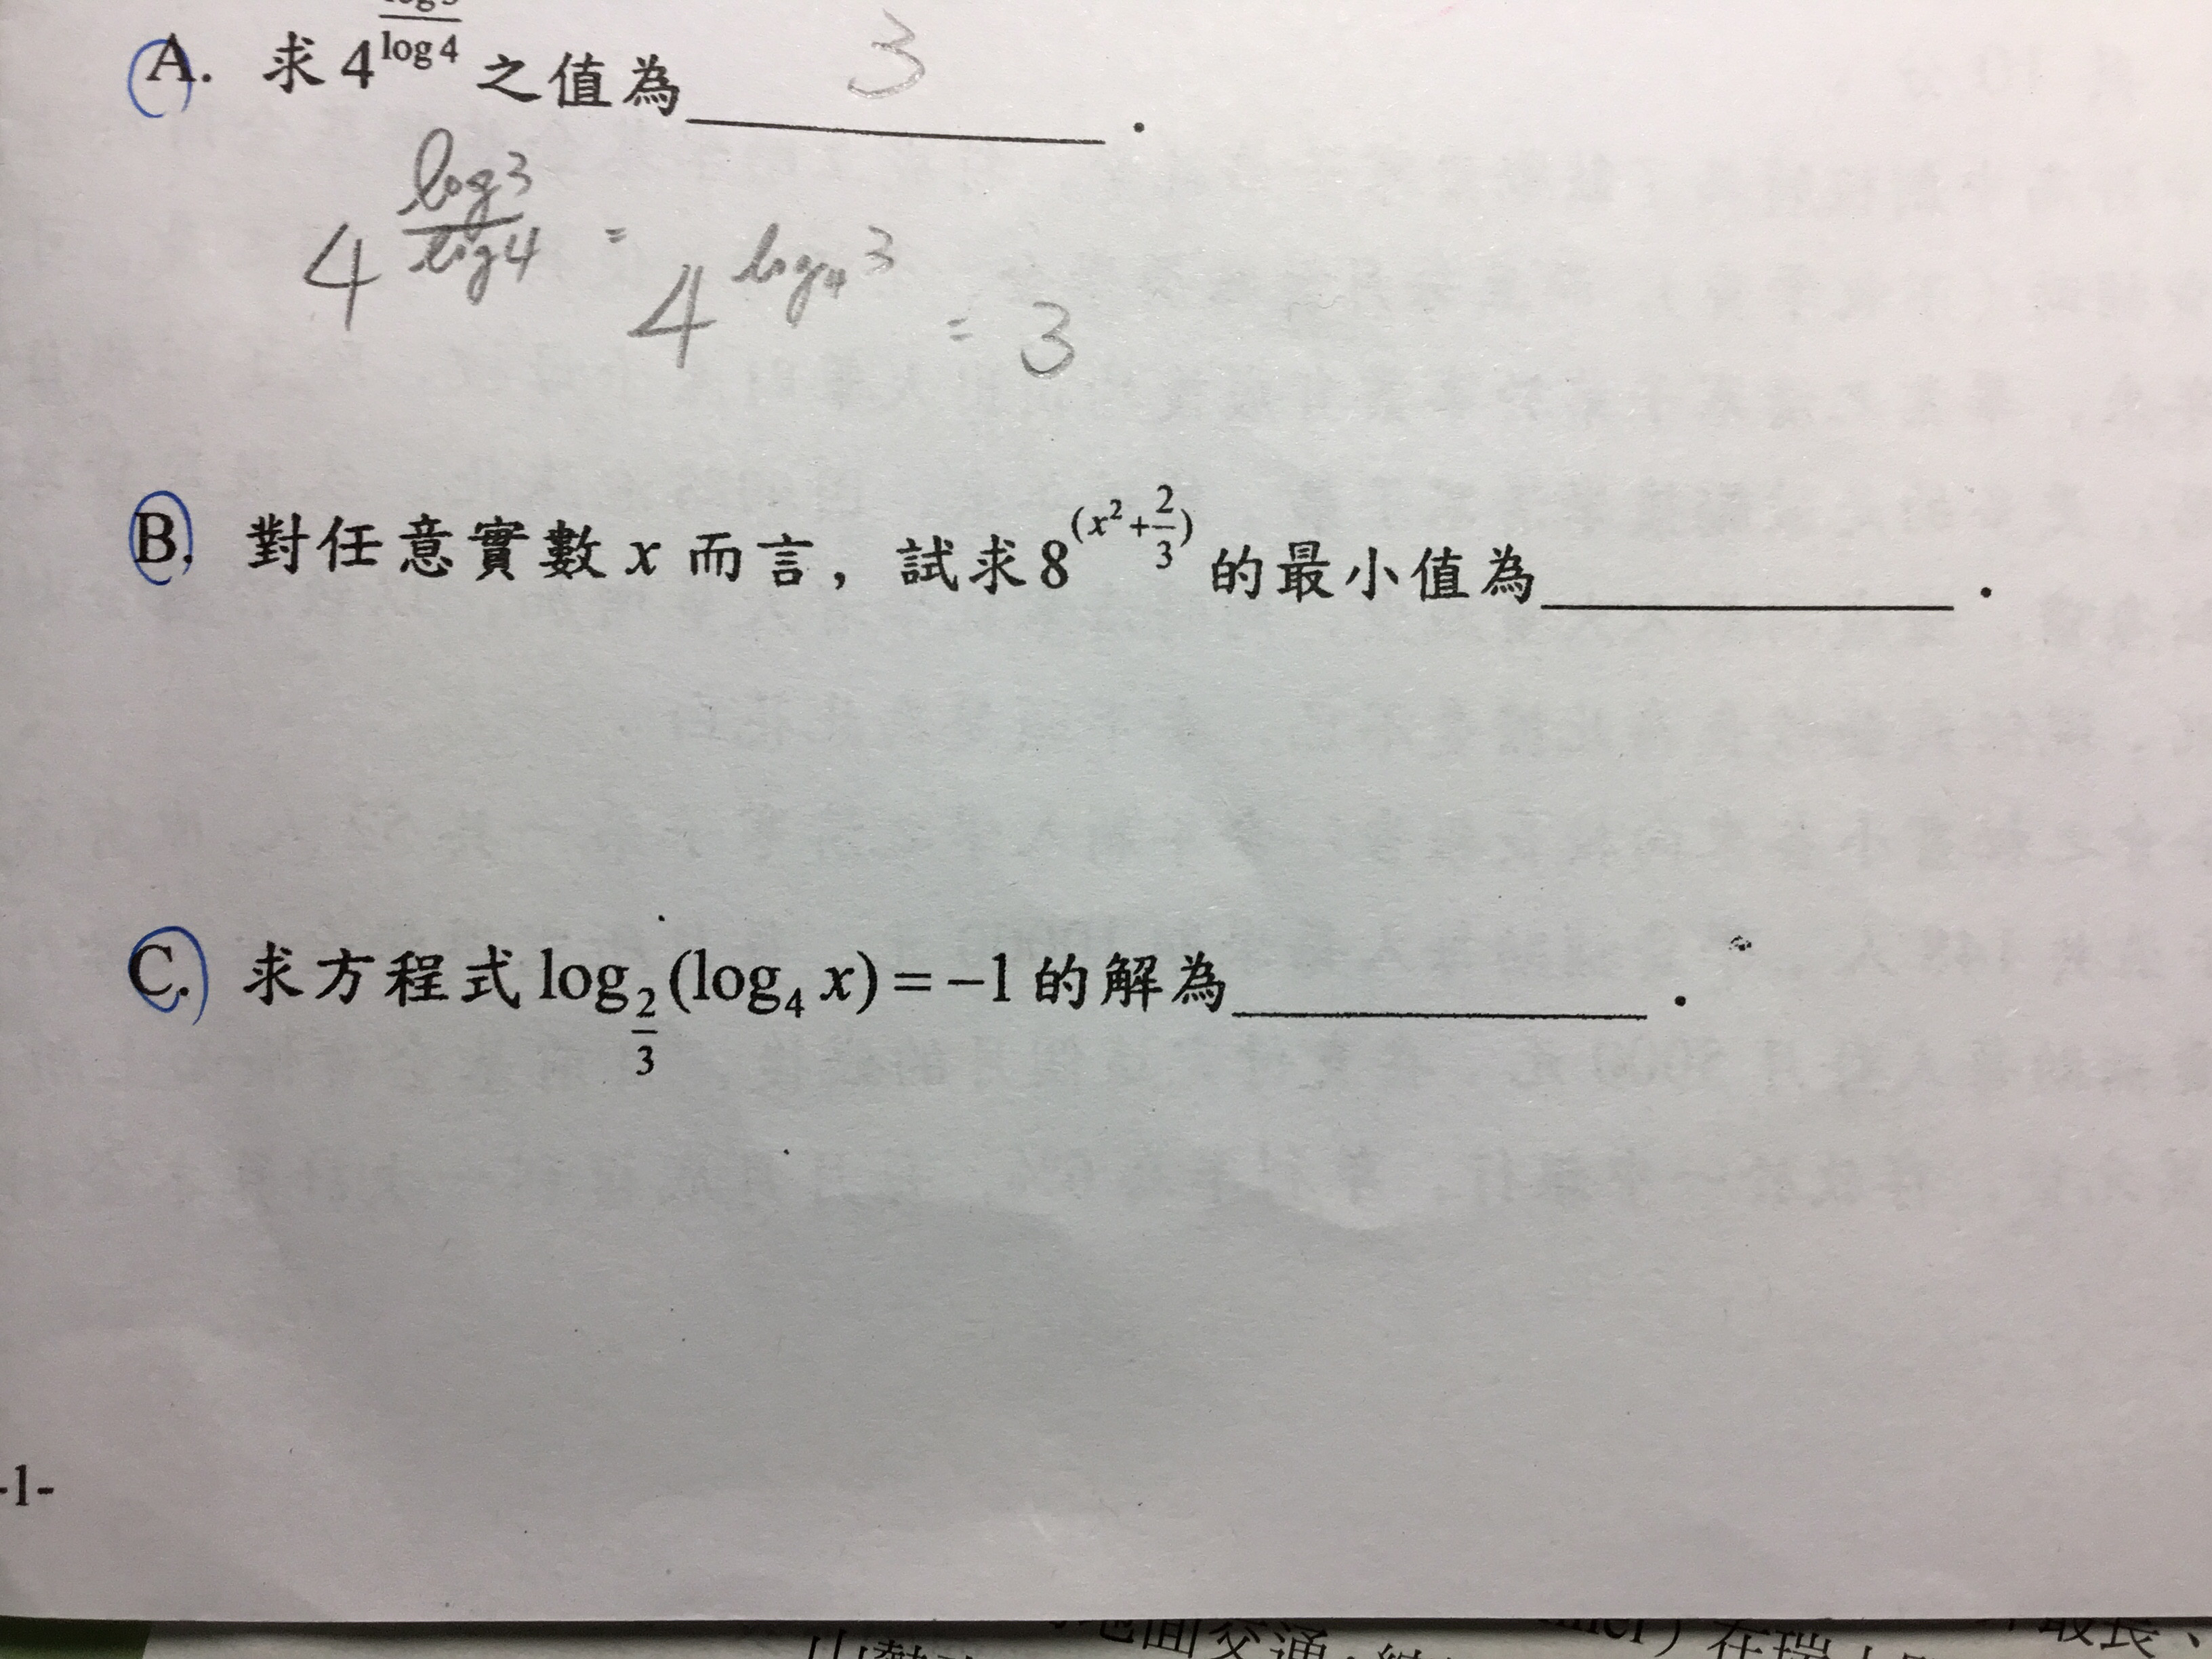 A. 求 4^{\frac{log 3}{log 4}} 之值為________.
3
4^{\frac{log 3}{log 4}} = 4^{log_4 3} = 3
B. 對任意實數 x 而言，試求 8^{(x^2+\frac{2}{3})} 的最小值為________.
C. 求方程式 log_{\frac{2}{3}} (log_4 x) = −1 的解為________.
-1-
地面交通
在瑞
最長、